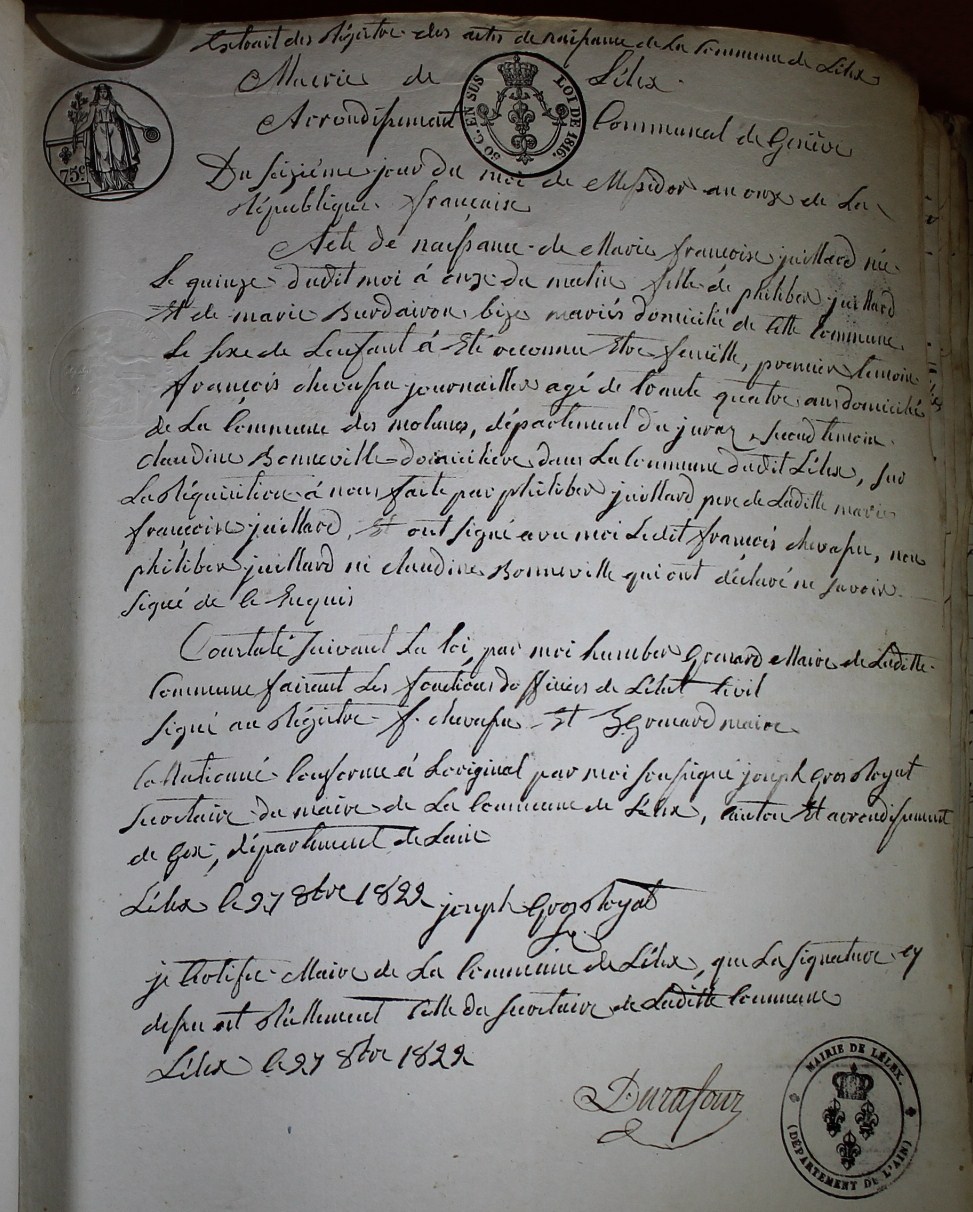 Extrait des Régistre des actes de naissance de La Commune de Lélex
Mairie de Lélex
Arrondissement Communal de Genève
50 C. EN SUS LOI DE 1816.
75 c
Du seizième jour du moi de Messidor an onze de La
République française
Acte de naissance de Marie françoise juillard née
Le quinze dudit moi à onze du matin fille de philiber juillard
Et de marie Burdairon mariés domicilié de Cette Commune
Le sexe de Lenfant à Eté reconnu Etre femelle, premier temoin
françois chevassu journaillier agé de trante quatre ans domicilié
de La Commune des molunes, département du juraz, second temoin
claudine Bonneville domiciliére dans La Commune dudit Lélex, sur
La Réquisition à nous faite par philiber juillard pere de Laditte marie
françoise juillard, Et ont signé avec moi Ledit françois chevassu, non
philiber juillard ni claudine Bonneville qui ont déclaré ne savoir
signé de ce Enquis
Constaté suivant La loi, par moi humber Gronard Maire de Laditte
Commune faisant Les fonctions dofficiers de Létat Civil
signé au Régistre f. chevassu Et h. Gronard maire
Collationné Conforme à Loriginal par moi soussigné joseph GrosRoyat
Secretaire du maire de La Commune de Lélex, Canton Et arrondissement
de Gex, département de Lain
Lélex le 27 8bre 1822 joseph GrosRoyat
je Certifie Maire de La Commune de Lélex, que La signature cy
dessu est Réellement Celle du Secretaire de Laditte Commune
Lélex le 27 8bre 1822
Durafour
MAIRIE DE LÉLEX.
(DÉPARTEMENT DE L'AIN)